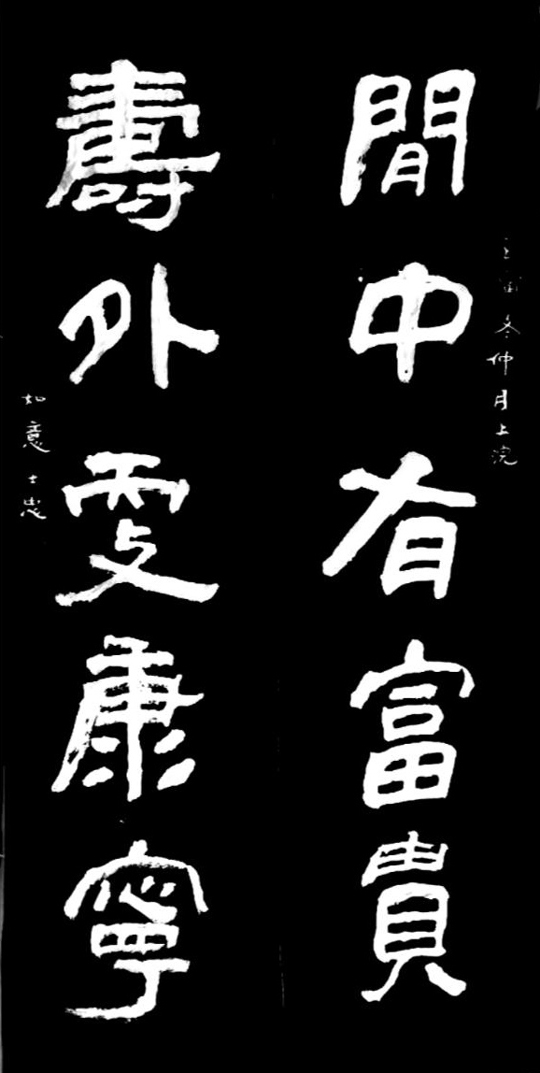 冬仲月上浣
閒中有富貴
壽外更康寧
如意士忠